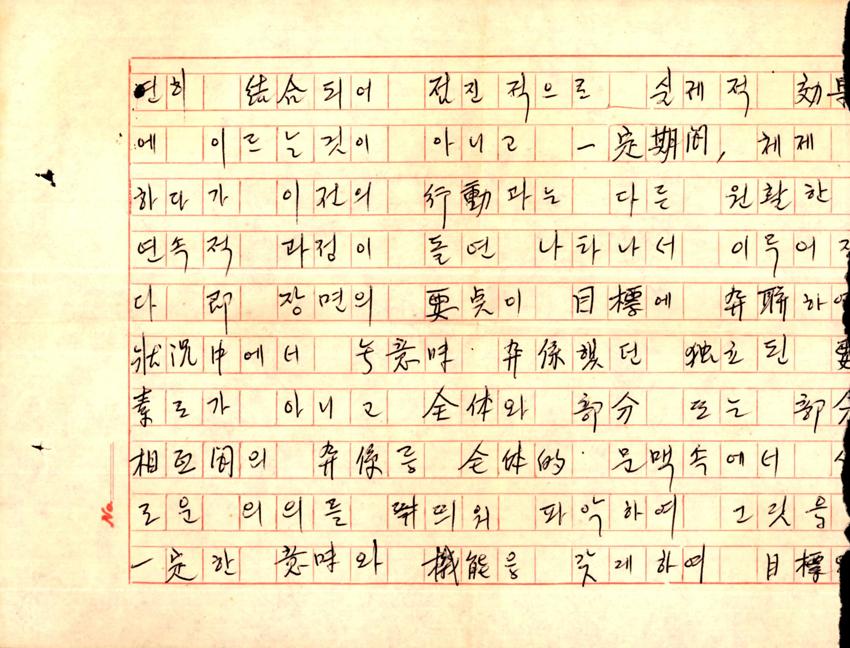 연히 結合되어 점진적으로 실제적 効果
에 이르는것이 아니고 一定期間, 체제
하다가 이전의 行動과는 다른 원활한
연속적 과정이 돌연 나타나서 이루어
다 即 장면의 要点이 目標에 関聯하여
狀況中에서 無意味 · 関係했던 独立된 要
素로가 아니고 全体와 部分 또는 部分
相互間의 関係를 全体的 · 문맥속에서
로운 의의를 띄워 파악하여 그것을
一定한 意味와 機能을 갖게하여 目標
No.